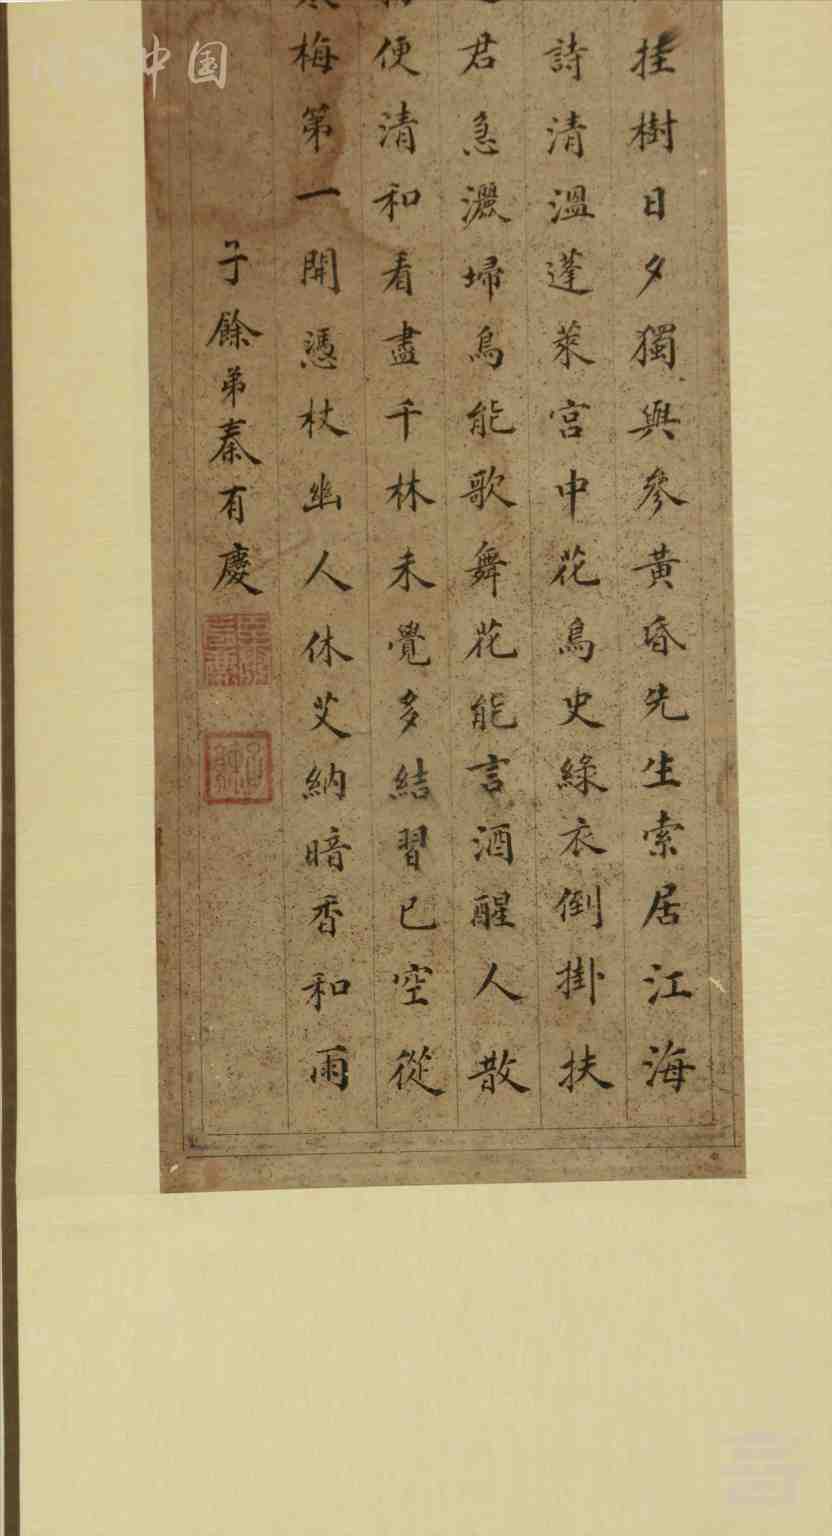 挂樹日夕獨與參黃昏先生索居江海
詩清溫蓬萊宮中花鳥史綠衣倒掛扶
君急灑埽鳥能歌舞花能言酒醒人散
便清和看盡千林未覺多結習已空從
梅第一開憑杖幽人休艾納暗香和雨
子餘弟秦有慶
中国